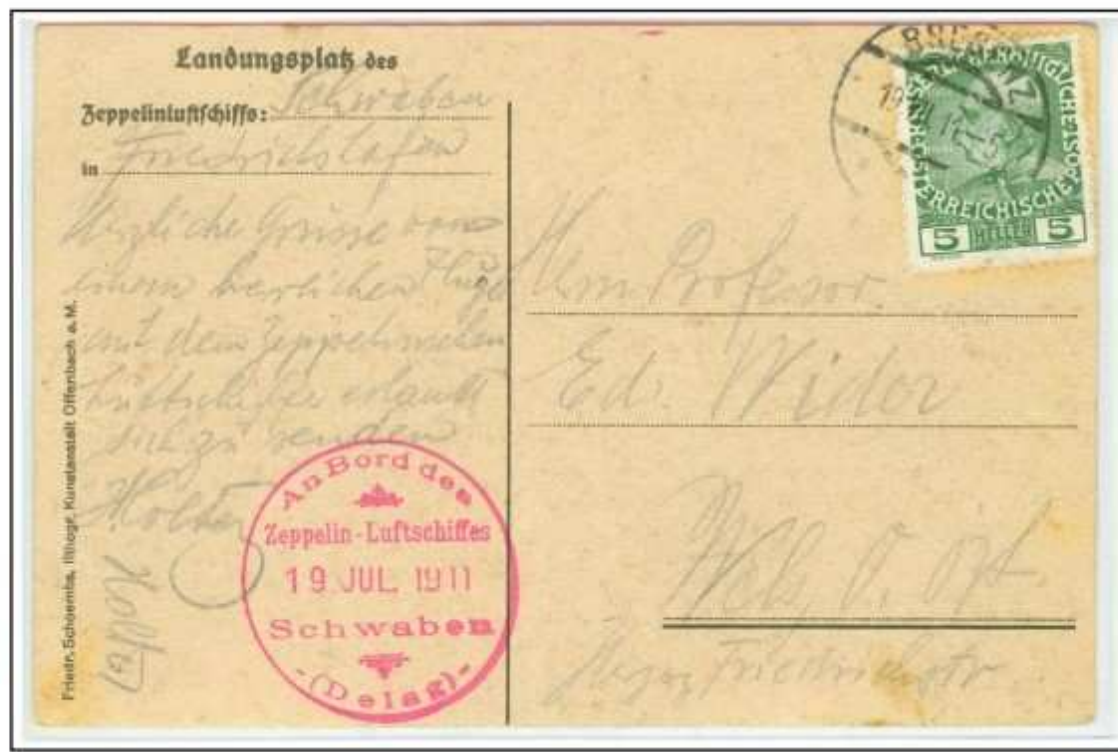 Landungsplatz des
Zeppelinluftschiffs: Schwaben
in Friedrichshafen
Herzliche Grüsse von
einem herrlichen Fluge
mit dem Zeppelinschen
Luftschiffe erlaubt
sich zu senden
Holter
Holter
Friedr. Schoembs, lithogr. Kunstanstalt Offenbach a. M.
An Bord des
Zeppelin-Luftschiffes
19 JUL. 1911
Schwaben
-(Delag)-
BREGENZ
ÖSTERREICHISCHE POST
5 HELLER 5
Herrn Professor
Ed. Widor
Wels, O. Öst
Friedrichstr